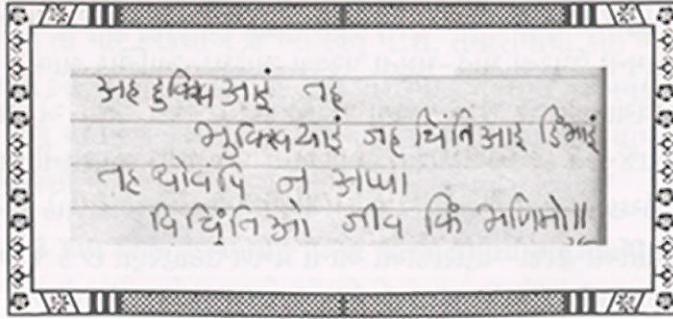 अह दुक्खिआइं तह
भुक्खियाइं जह चिंतिआइं डिंभाइं
तह थोवंपि न अप्पा
विचिंतिओ जीव किं भणिमो॥